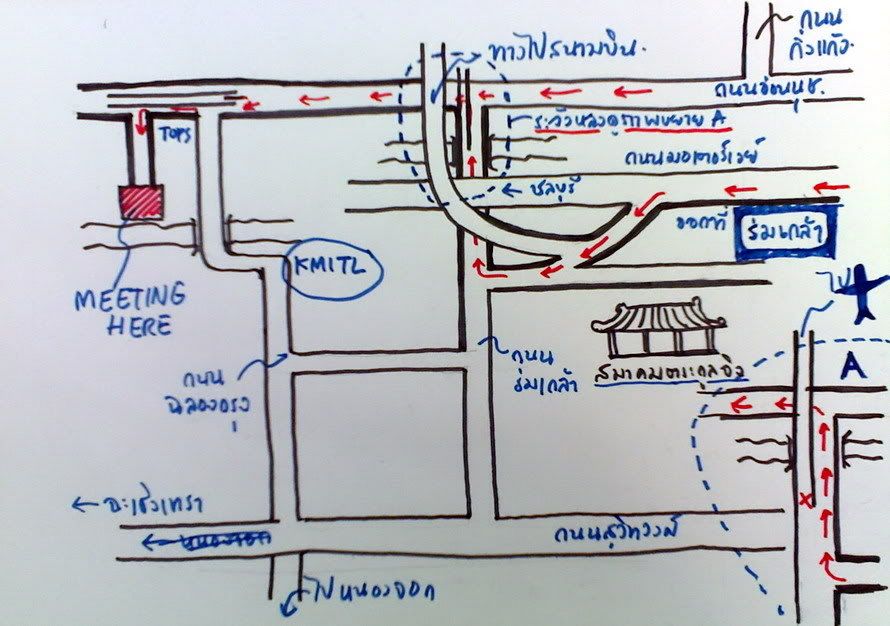 ถนน
กิ่งแก้ว
ทางไปสนามบิน
ถนนอ่อนนุช
ระวังหลงดูภาพขยาย A
TOPS
ถนนมอเตอร์เวย์
ชลบุรี
ออกที่
ร่มเกล้า
KMITL
MEETING
HERE
ไป
ถนน
ร่มเกล้า
สมาคมตระกูลอึ้ง
A
ถนน
ฉลองกรุง
ฉะเชิงเทรา
ถนนสุวินทวงศ์
ไปหนองจอก